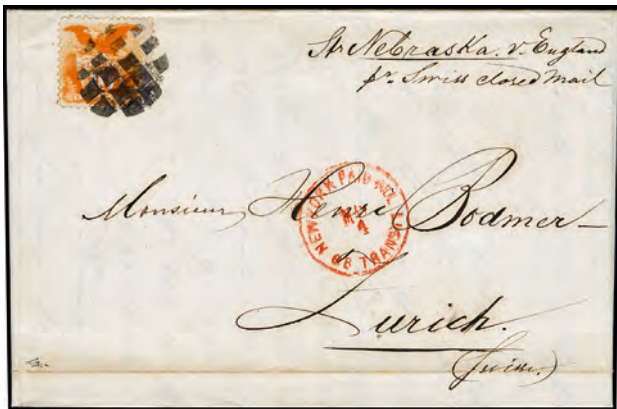 Str Nebraska. v. England
pr. Swiss closed Mail
Monsieur Henri Bodmer
NEW YORK PAID ALL
TRANSIT
Zurich.
(Suisse.)